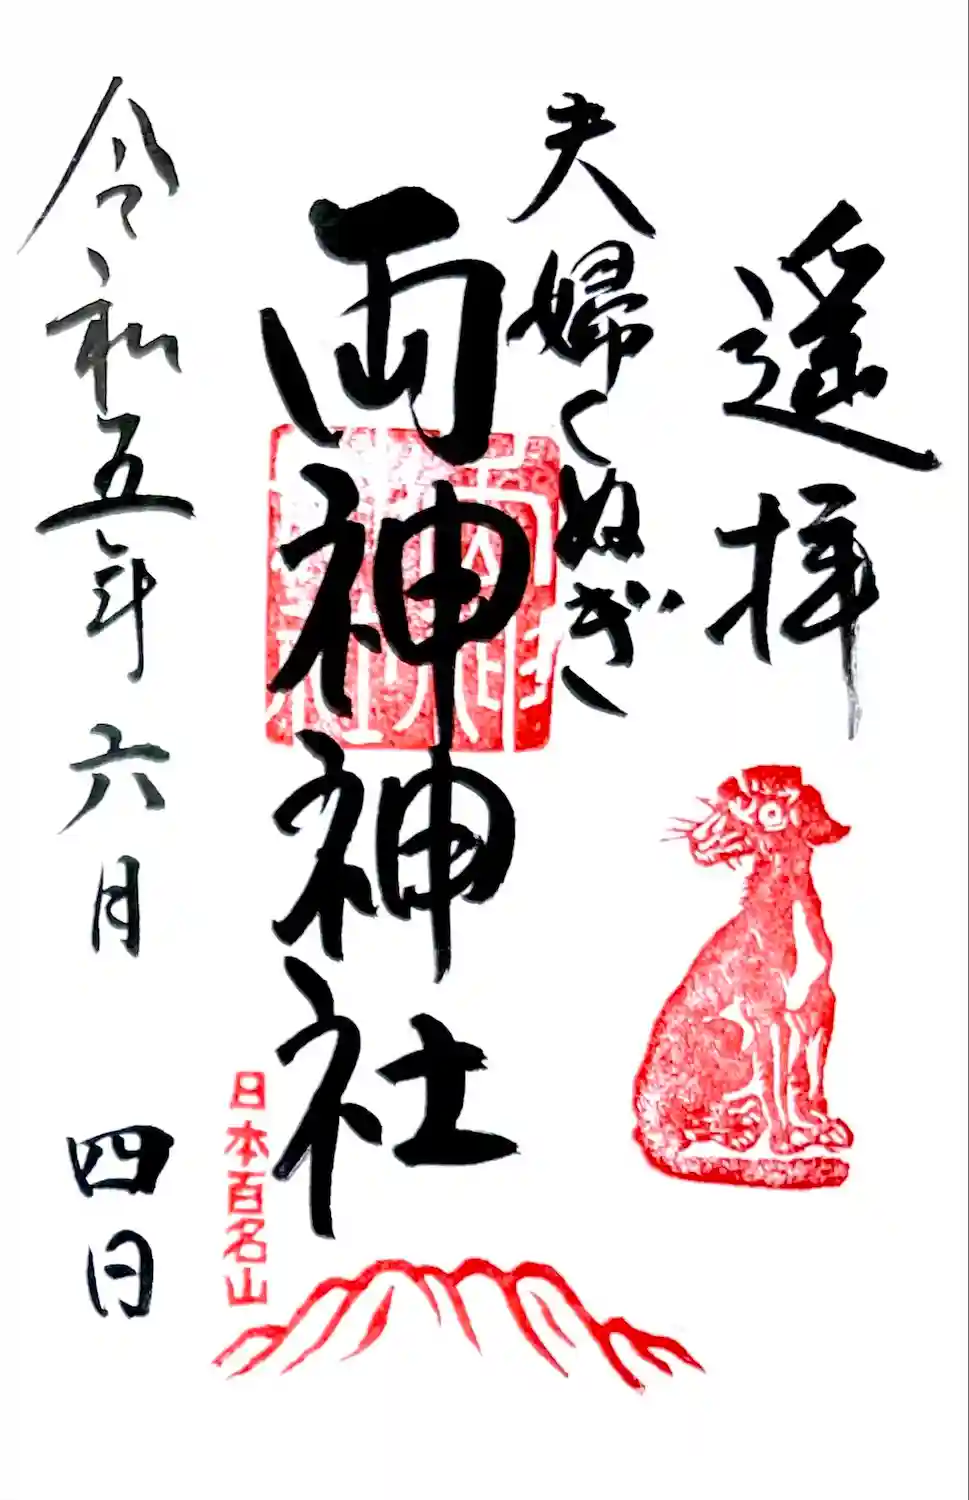 遥拝
夫婦くぬぎ
両神神社
日本百名山
令和五年六月四日